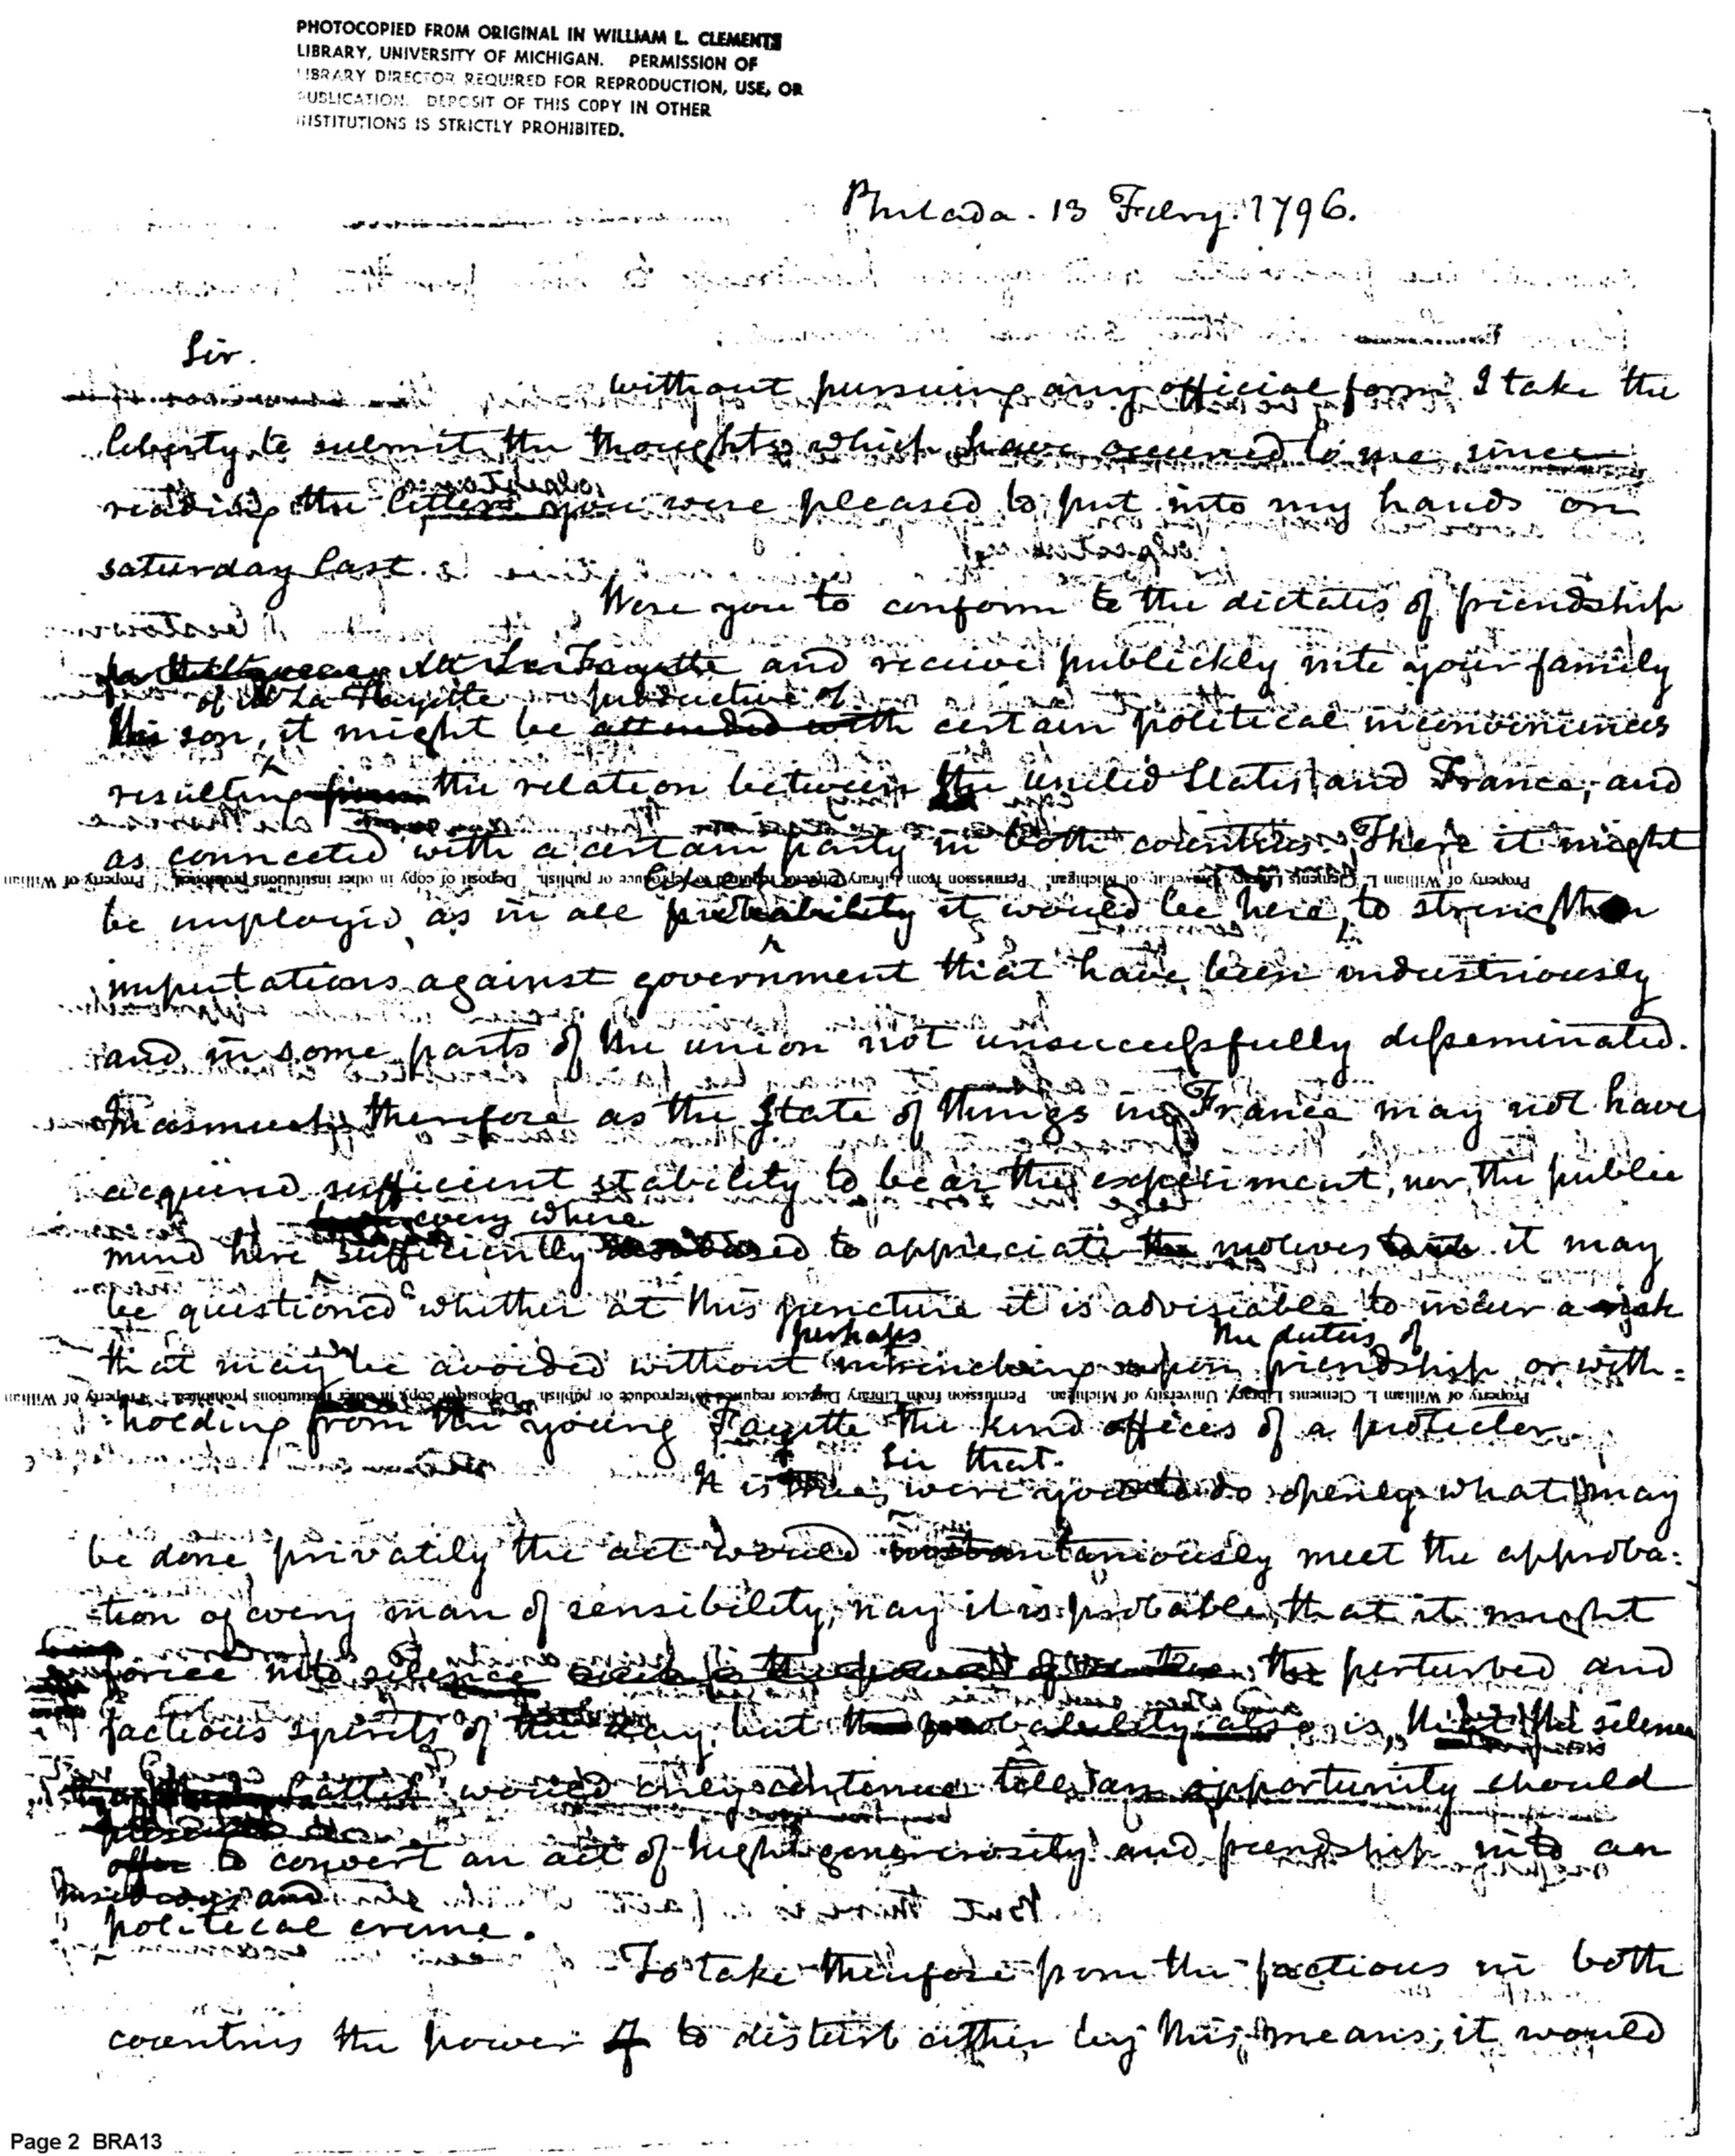 PHOTOCOPIED FROM ORIGINAL IN WILLIAM L. CLEMENTS
LIBRARY, UNIVERSITY OF MICHIGAN. PERMISSION OF
LIBRARY DIRECTOR REQUIRED FOR REPRODUCTION, USE, OR
PUBLICATION. DEPOSIT OF THIS COPY IN OTHER
INSTITUTIONS IS STRICTLY PROHIBITED.
Philada. 13 Febry. 1796.
Sir.
Without pursuing any official form I take the
liberty to submit the thoughts which have occured to me since
reading the letters you were pleased to put into my hands on
saturday last.
Were you to conform to the dictates of friendship
La Fayette and receive publickly into your family
of La Fayette productive of
his son, it might be attended with certain political inconveniences
resulting from the relation between the united States and France, and
as connected with a certain party in both countries. There it might
be employed, as in all probability it would be here, to strengthen
imputations against government that have been industriously
and in some parts of the union not unsuccessfully disseminated.
Inasmuch therefore as the State of things in France may not have
acquired sufficient stability to bear the experiment, nor the public
every where
mind here sufficiently to appreciate the motives it may
be questioned whether at this juncture it is adviseable to incur a risk
perhaps the duties of
that may be avoided without intrenching upon friendship or with=
Property of William L. Clements Library, University of Michigan. Permission from Library Director required to reproduce or publish. Deposit of copy in other institutions prohibited. Property of William
holding from the young Fayette the kind offices of a protector.
Sir that
It is true, were you to do openly what may
be done privately the act would instantaneously meet the approba=
tion of every man of sensibility, nay it is probable, that it might
force into silence the perturbed and
factious spirits of the day, but the probability also is, that the silence
latter would only continue till an opportunity should
offer to convert an act of high generosity and friendship into an
insidious and
political crime.
To take therefore from the factious in both
countries the power of to disturb either by this means, it would
Page 2 BRA13